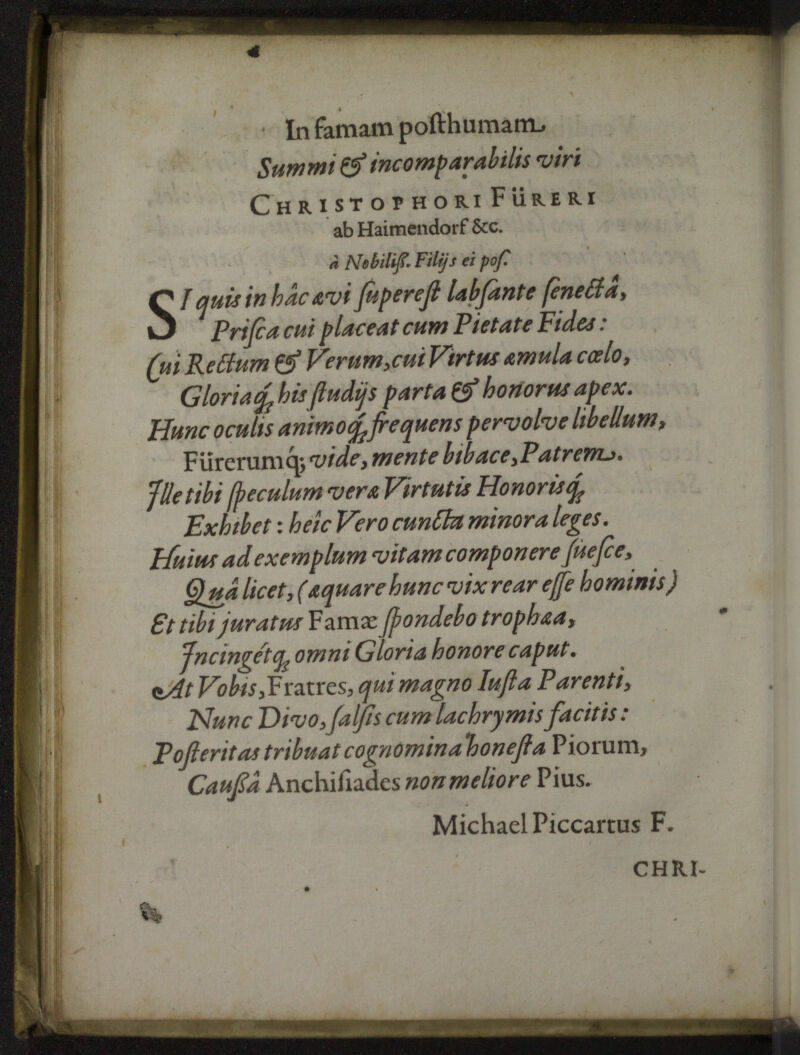 In famam poſthumam
Summi & incomparabilis viri
CHRISTOPHORI FÜRERI
ab Haimendorf &c.
à Nobiliſſ. Filijs ei poſ.
SI quis in hâc ævi ſupereſt labſante ſenectâ,
Priſca cui placeat cum Pietate Fides:
Cui Rectum & Verum, cui Virtus æmula cœlo,
Gloriaq́; his ſtudijs parta & honorus apex.
Hunc oculis animoq́; frequens pervolve libellum,
Fürerumq; vide, mente bibace, Patrem.
Ille tibi ſpeculum veræ Virtutis Honorisq́;
Exhibet: heîc Vero cuncta minora leges.
Huius ad exemplum vitam componere ſueſce,
Quâ licet, (æquare hunc vix rear eſſe hominis)
Et tibi juratus Famæ ſpondebo trophæa,
Incingétq́; omni Gloria honore caput.
At Vobis, Fratres, qui magno Iuſta Parenti,
Nunc Divo, ſalſis cum lachrymis facitis:
Poſteritas tribuat cognomina honeſta Piorum,
Cauſſâ Anchiſiades non meliore Pius.
Michael Piccartus F.
CHRI-